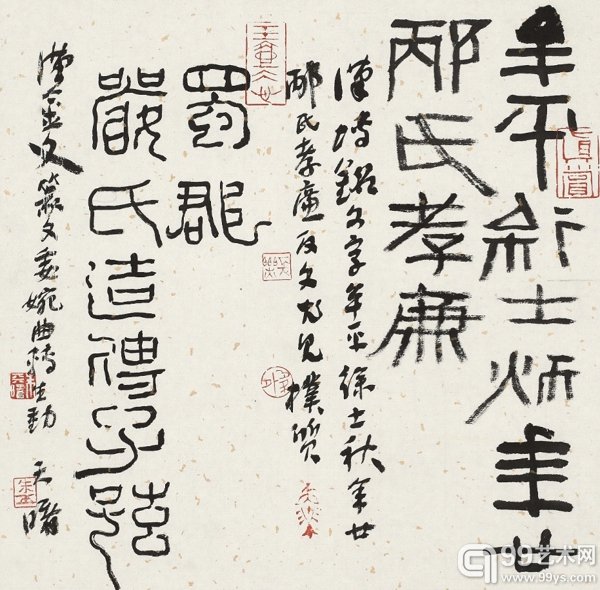 年平徐士炳年廿
邴氏孝廉
漢塼銘文字年平徐士秋年廿
邴氏孝廉反文尤見樸質
蜀郡
嚴氏造傳子孫
漢金文篆文婉曲轉生動
天曙
真賞
99艺术网
www.99ys.com